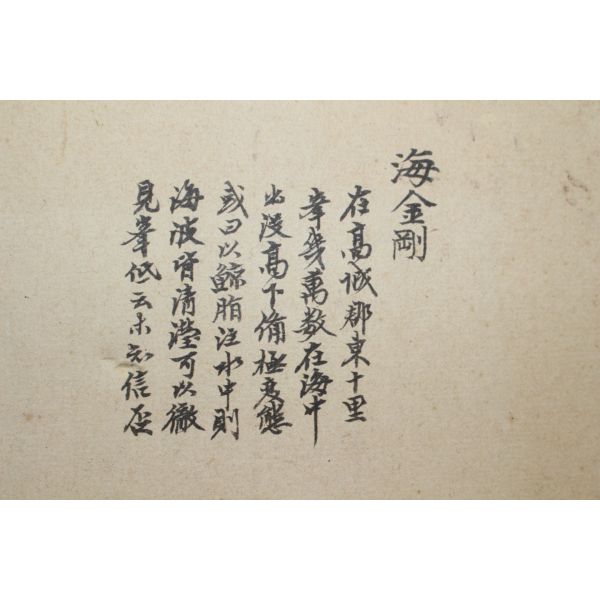 海金剛
在高城郡東十里
峯幾萬數在海中
出沒高下備極变態
或曰以鯨脂注水中則
海波皆清瀅可以徹
見峯低云未知信否